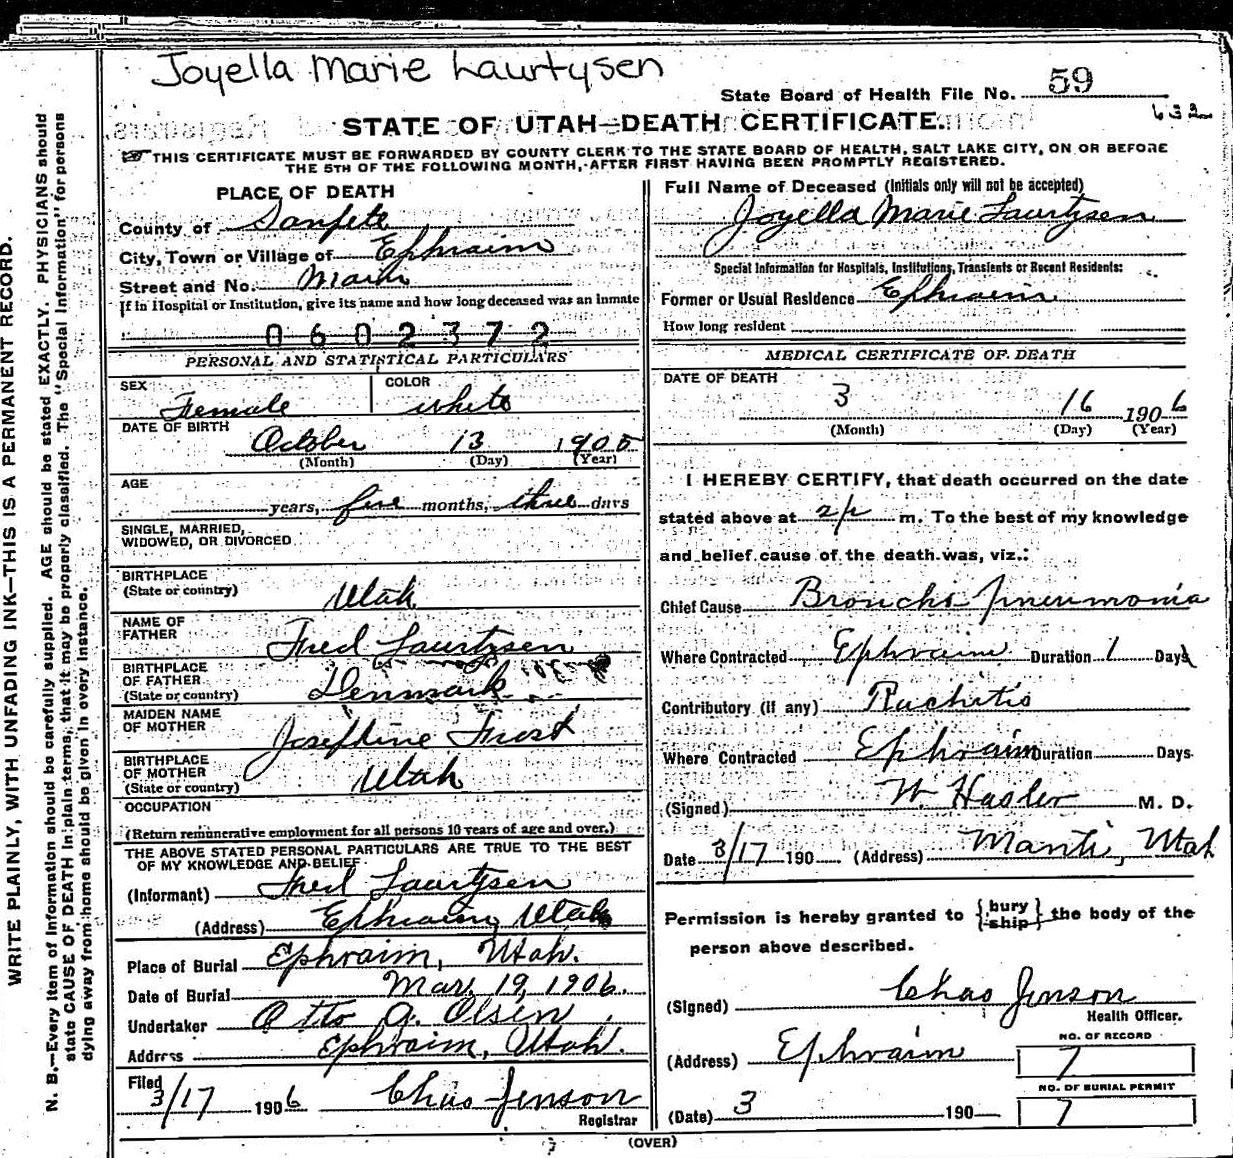 Joyella Marie Laurtysen
State Board of Health File No. 59
632
STATE OF UTAH—DEATH CERTIFICATE.
THIS CERTIFICATE MUST BE FORWARDED BY COUNTY CLERK TO THE STATE BOARD OF HEALTH, SALT LAKE CITY, ON OR BEFORE
THE 5TH OF THE FOLLOWING MONTH, AFTER FIRST HAVING BEEN PROMPTLY REGISTERED.
WRITE PLAINLY, WITH UNFADING INK—THIS IS A PERMANENT RECORD.
N. B.—Every item of information should be carefully supplied. AGE should be stated EXACTLY. PHYSICIANS should
state CAUSE OF DEATH in plain terms, that it may be properly classified. The "Special Information" for persons
dying away from home should be given in every instance.
PLACE OF DEATH
County of Sanpete
City, Town or Village of Ephraim
Street and No. Main
If in Hospital or Institution, give its name and how long deceased was an inmate
0602372
PERSONAL AND STATISTICAL PARTICULARS
SEX Female COLOR White
DATE OF BIRTH
October 13 1905
(Month) (Day) (Year)
AGE
years, five months, three days
SINGLE, MARRIED,
WIDOWED, OR DIVORCED
BIRTHPLACE
(State or country) Utah
NAME OF
FATHER Fred Laurtysen
BIRTHPLACE
OF FATHER
(State or country) Denmark
MAIDEN NAME
OF MOTHER Josephine Frost
BIRTHPLACE
OF MOTHER
(State or country) Utah
OCCUPATION
(Return remunerative employment for all persons 10 years of age and over.)
THE ABOVE STATED PERSONAL PARTICULARS ARE TRUE TO THE BEST
OF MY KNOWLEDGE AND BELIEF
(Informant) Fred Laurtysen
(Address) Ephraim, Utah
Place of Burial Ephraim, Utah.
Date of Burial Mar. 19, 1906.
Undertaker Otto A. Olsen,
Address Ephraim, Utah.
Filed
3/17 1906 Chas Jenson
Registrar
Full Name of Deceased (Initials only will not be accepted)
Joyella Marie Laurtysen
Special Information for Hospitals, Institutions, Transients or Recent Residents:
Former or Usual Residence Ephraim
How long resident
MEDICAL CERTIFICATE OF DEATH
DATE OF DEATH
3 16 1906
(Month) (Day) (Year)
I HEREBY CERTIFY, that death occurred on the date
stated above at 2 p m. To the best of my knowledge
and belief cause of the death was, viz.:
Chief Cause Broncho pneumonia
Where Contracted Ephraim Duration 1 Days
Contributory (if any) Rachitis
Where Contracted Ephraim Duration Days
(Signed) W. Hasler M. D.
Date 3/17 190 (Address) Manti, Utah
Permission is hereby granted to { bury ship } the body of the
person above described.
(Signed) Chas Jenson
Health Officer.
(Address) Ephraim
NO. OF RECORD
7
NO. OF BURIAL PERMIT
7
(Date) 3 190
(OVER)